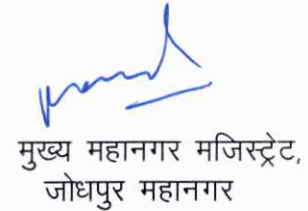 मुख्य महानगर मजिस्ट्रेट,
जोधपुर महानगर